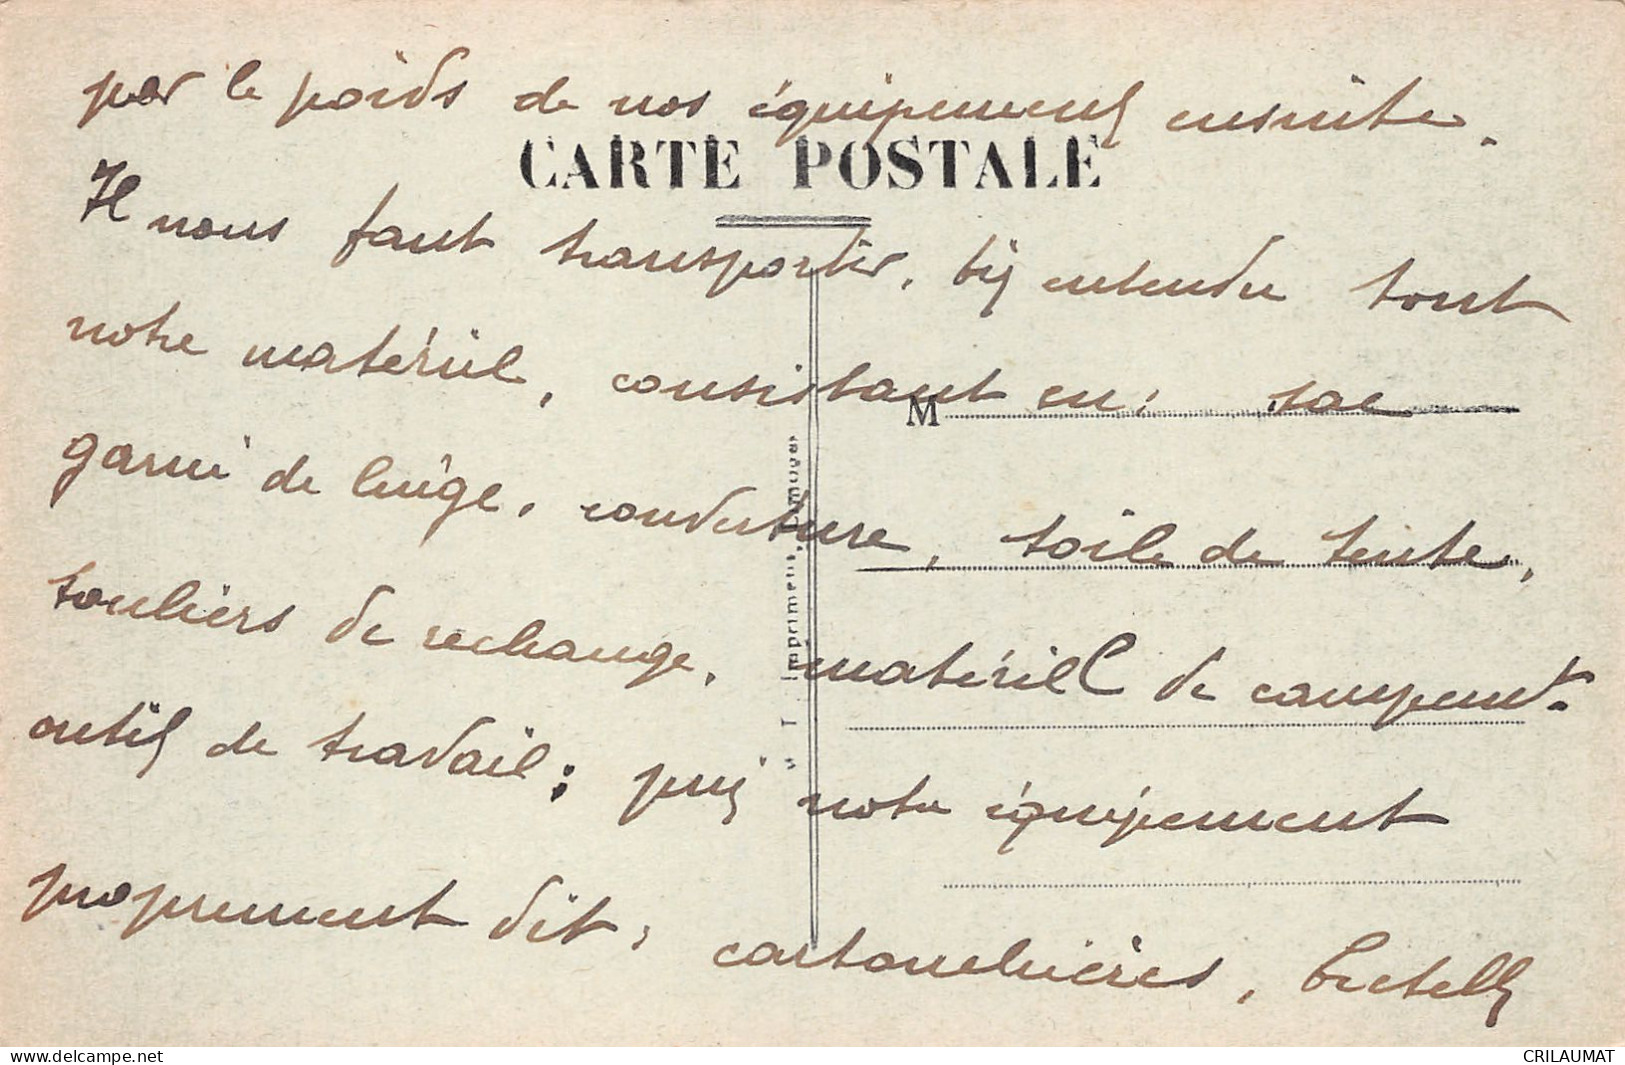 par le poids de nos équipements ensuite.
CARTE POSTALE
Il nous faut transporter, bien entendu tout
notre matériel, consistant en: sac
M
garni de linge, couverture, toile de tente,
souliers de rechange, matériel de campement.
outils de travail; puis notre équipement
proprement dit: cartouchières, bretelles
Imprimeur, Limoges
www.delcampe.net
CRILAUMAT